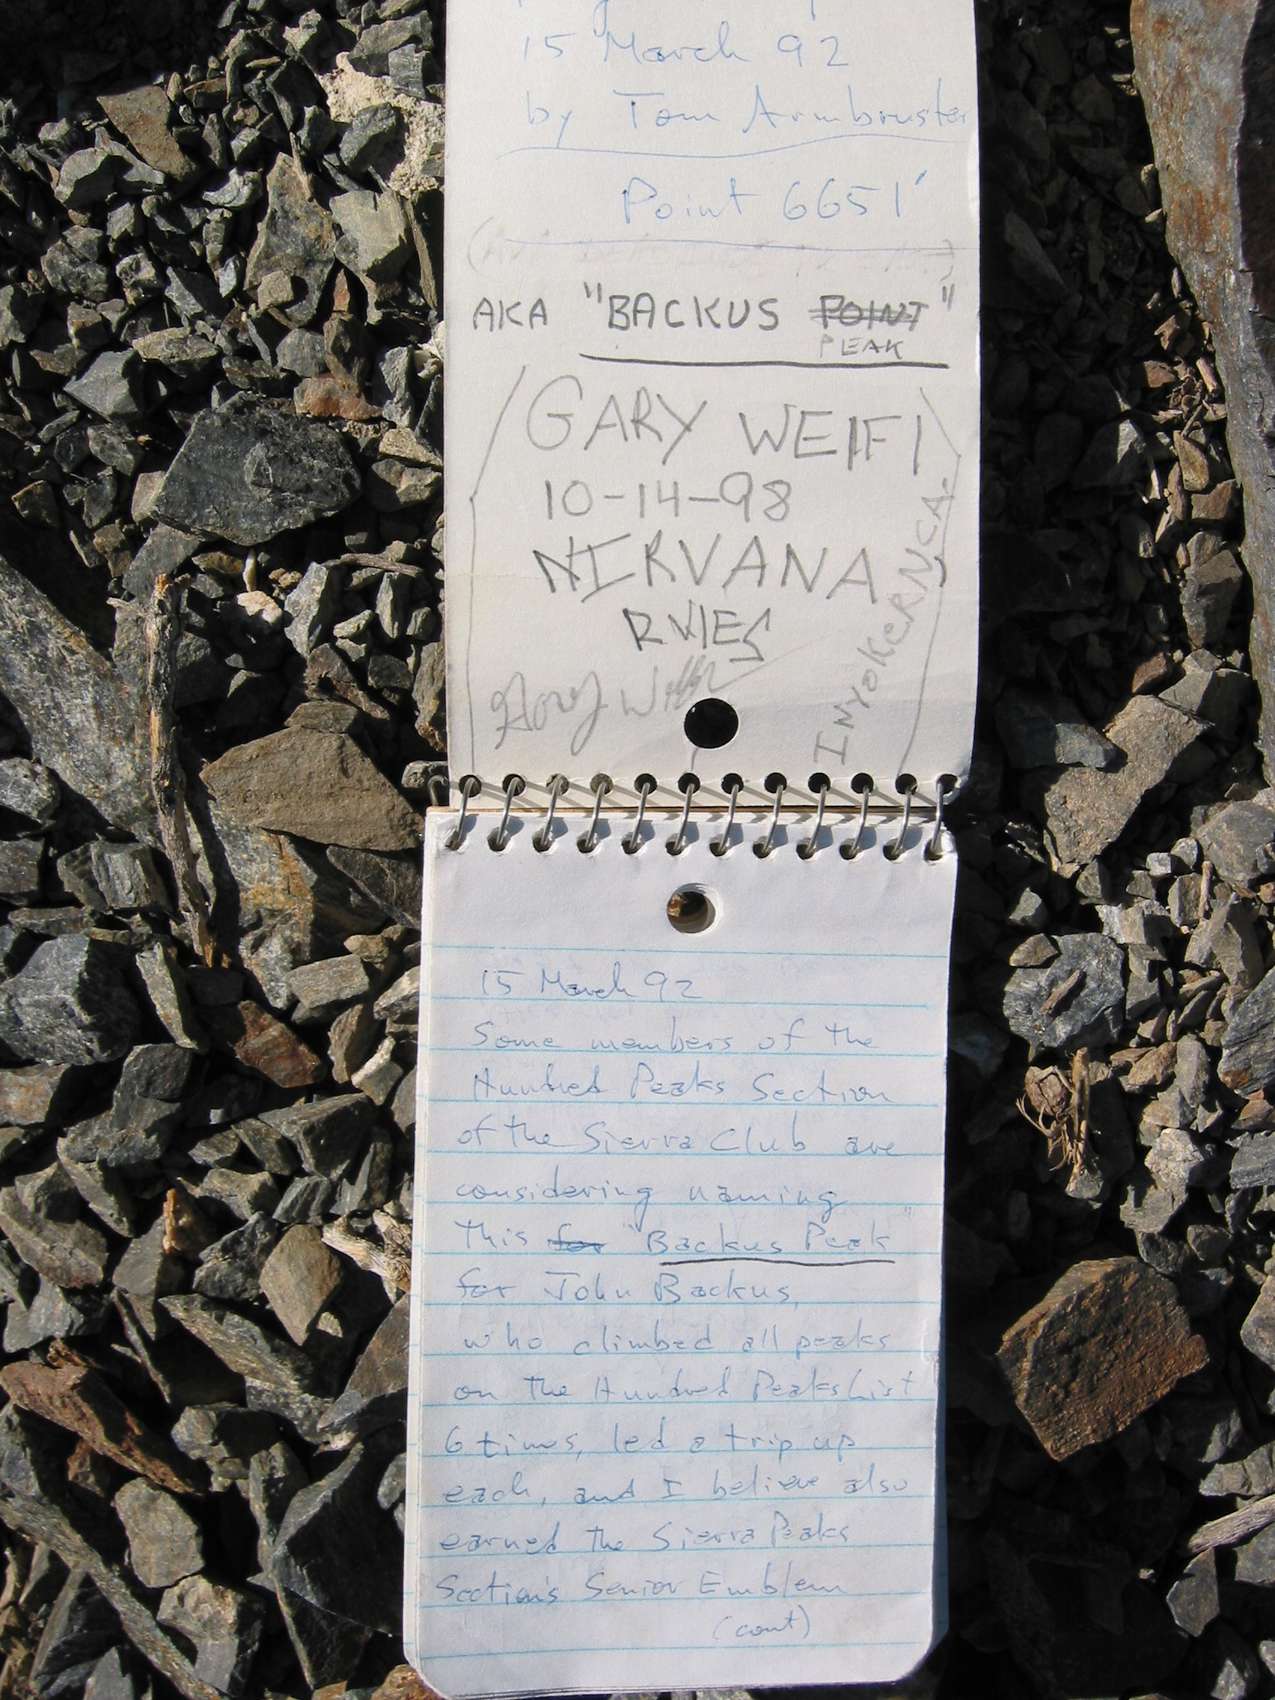 15 March 92
by Tom Armbruster
Point 6651'
AKA "BACKUS POINT"
PEAK
GARY WEIFI
10-14-98
NIRVANA
RULES
INYOKERN CA.
Gary
15 March 92
Some members of the
Hundred Peaks Section
of the Sierra Club are
considering naming
this for "Backus Peak"
for John Backus,
who climbed all peaks
on the Hundred Peaks List
6 times, led a trip up
each, and I believe also
earned the Sierra Peaks
Section's Senior Emblem
(cont)